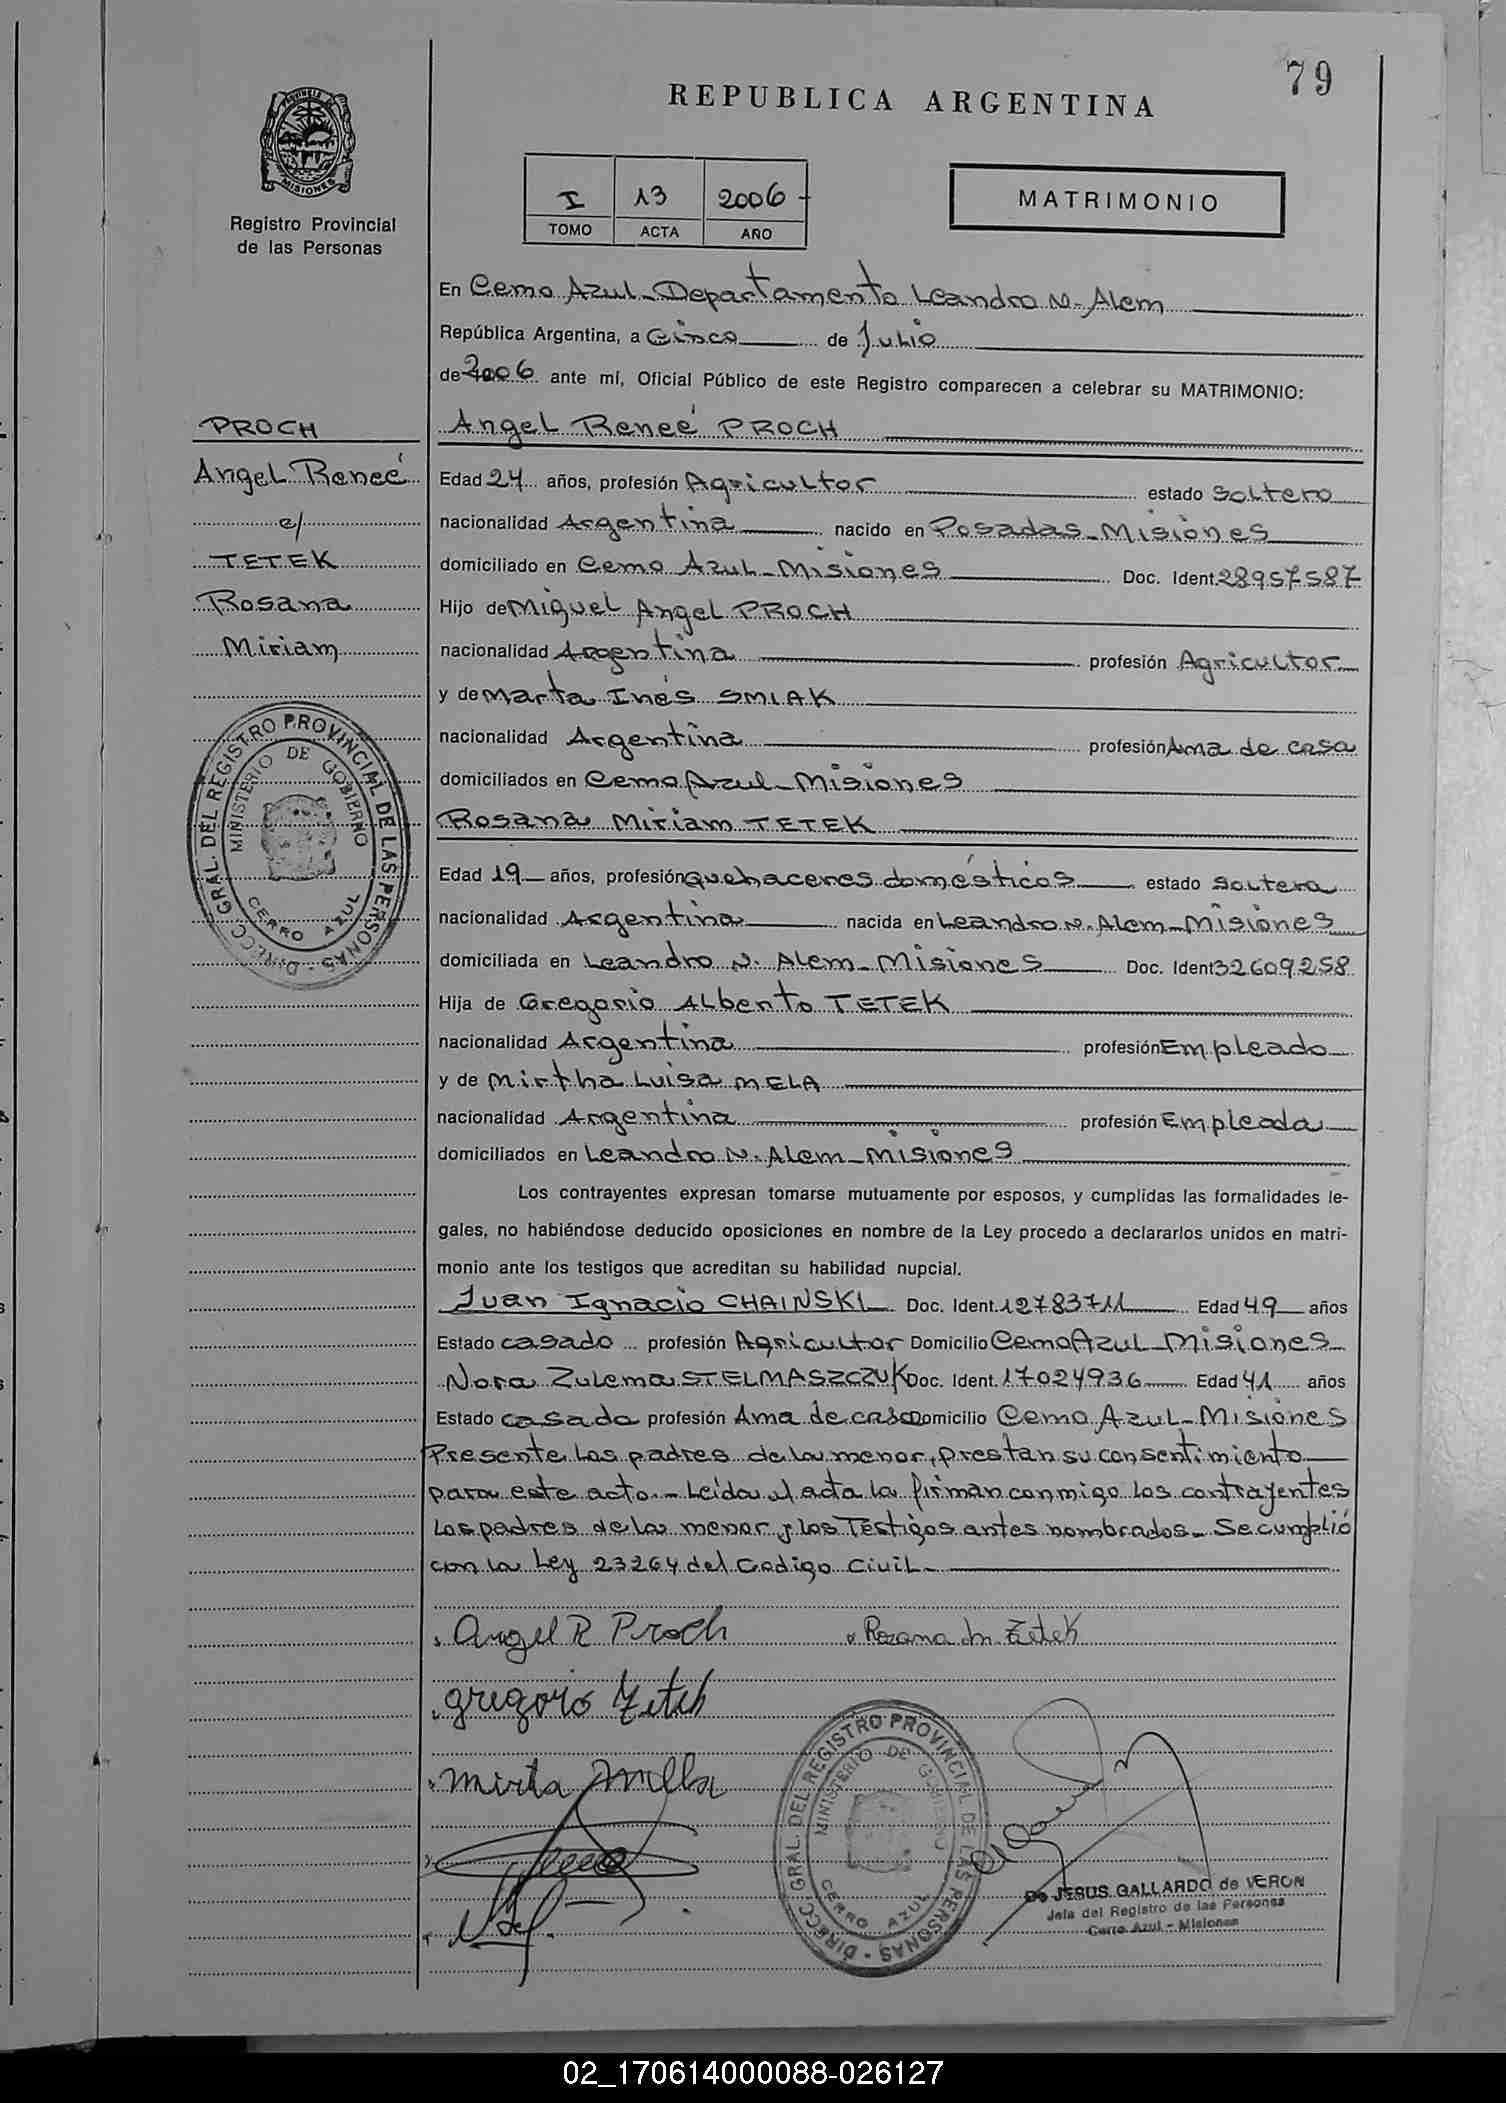 79
REPUBLICA ARGENTINA
PROVINCIA DE
MISIONES
Registro Provincial
de las Personas
I 13 2006
TOMO ACTA AÑO
MATRIMONIO
En Cerro Azul - Departamento Leandro N. Alem
República Argentina, a Cinco de Julio
de 2006 ante mí, Oficial Público de este Registro comparecen a celebrar su MATRIMONIO:
PROCH
Angel Reneé
c/
TETEK
Rosana
Miriam
Angel Reneé PROCH
Edad 24 años, profesión Agricultor estado Soltero
nacionalidad Argentina nacido en Posadas - Misiones
domiciliado en Cerro Azul - Misiones Doc. Ident. 28957587
Hijo de Miguel Angel PROCH
nacionalidad Argentina profesión Agricultor
y de Marta Inés SMIAK
nacionalidad Argentina profesión Ama de casa
domiciliados en Cerro Azul - Misiones
Rosana Miriam TETEK
Edad 19 años, profesión quehaceres domésticos estado Soltera
nacionalidad Argentina nacida en Leandro N. Alem - Misiones
domiciliada en Leandro N. Alem - Misiones Doc. Ident 32609258
Hija de Gregorio Alberto TETEK
nacionalidad Argentina profesión Empleado
y de Mirtha Luisa MELA
nacionalidad Argentina profesión Empleada
domiciliados en Leandro N. Alem - Misiones
Los contrayentes expresan tomarse mutuamente por esposos, y cumplidas las formalidades le-
gales, no habiéndose deducido oposiciones en nombre de la Ley procedo a declararlos unidos en matri-
monio ante los testigos que acreditan su habilidad nupcial.
Juan Ignacio CHAINSKI Doc. Ident. 12783711 Edad 49 años
Estado casado profesión Agricultor Domicilio Cerro Azul - Misiones
Nora Zulema STELMASZCZUK Doc. Ident. 17024936 Edad 41 años
Estado casada profesión Ama de casa Domicilio Cerro Azul - Misiones
Presente los padres de la menor, prestan su consentimiento
para este acto. - Leída el acta la firman conmigo los contrayentes
los padres de la menor y los Testigos antes nombrados - Se cumplió
con la Ley 23264 del Codigo Civil -
DIRECC. GRAL. DEL REGISTRO PROVINCIAL DE LAS PERSONAS
MINISTERIO DE GOBIERNO
CERRO AZUL
Angel R Proch Rozana M. Tetek
gregorio Tetek
mirta Mella
DIRECC. GRAL. DEL REGISTRO PROVINCIAL DE LAS PERSONAS
MINISTERIO DE GOBIERNO
CERRO AZUL
De JESUS GALLARDO de VERON
Jefa del Registro de las Personas
Cerro Azul - Misiones
02_170614000088-026127